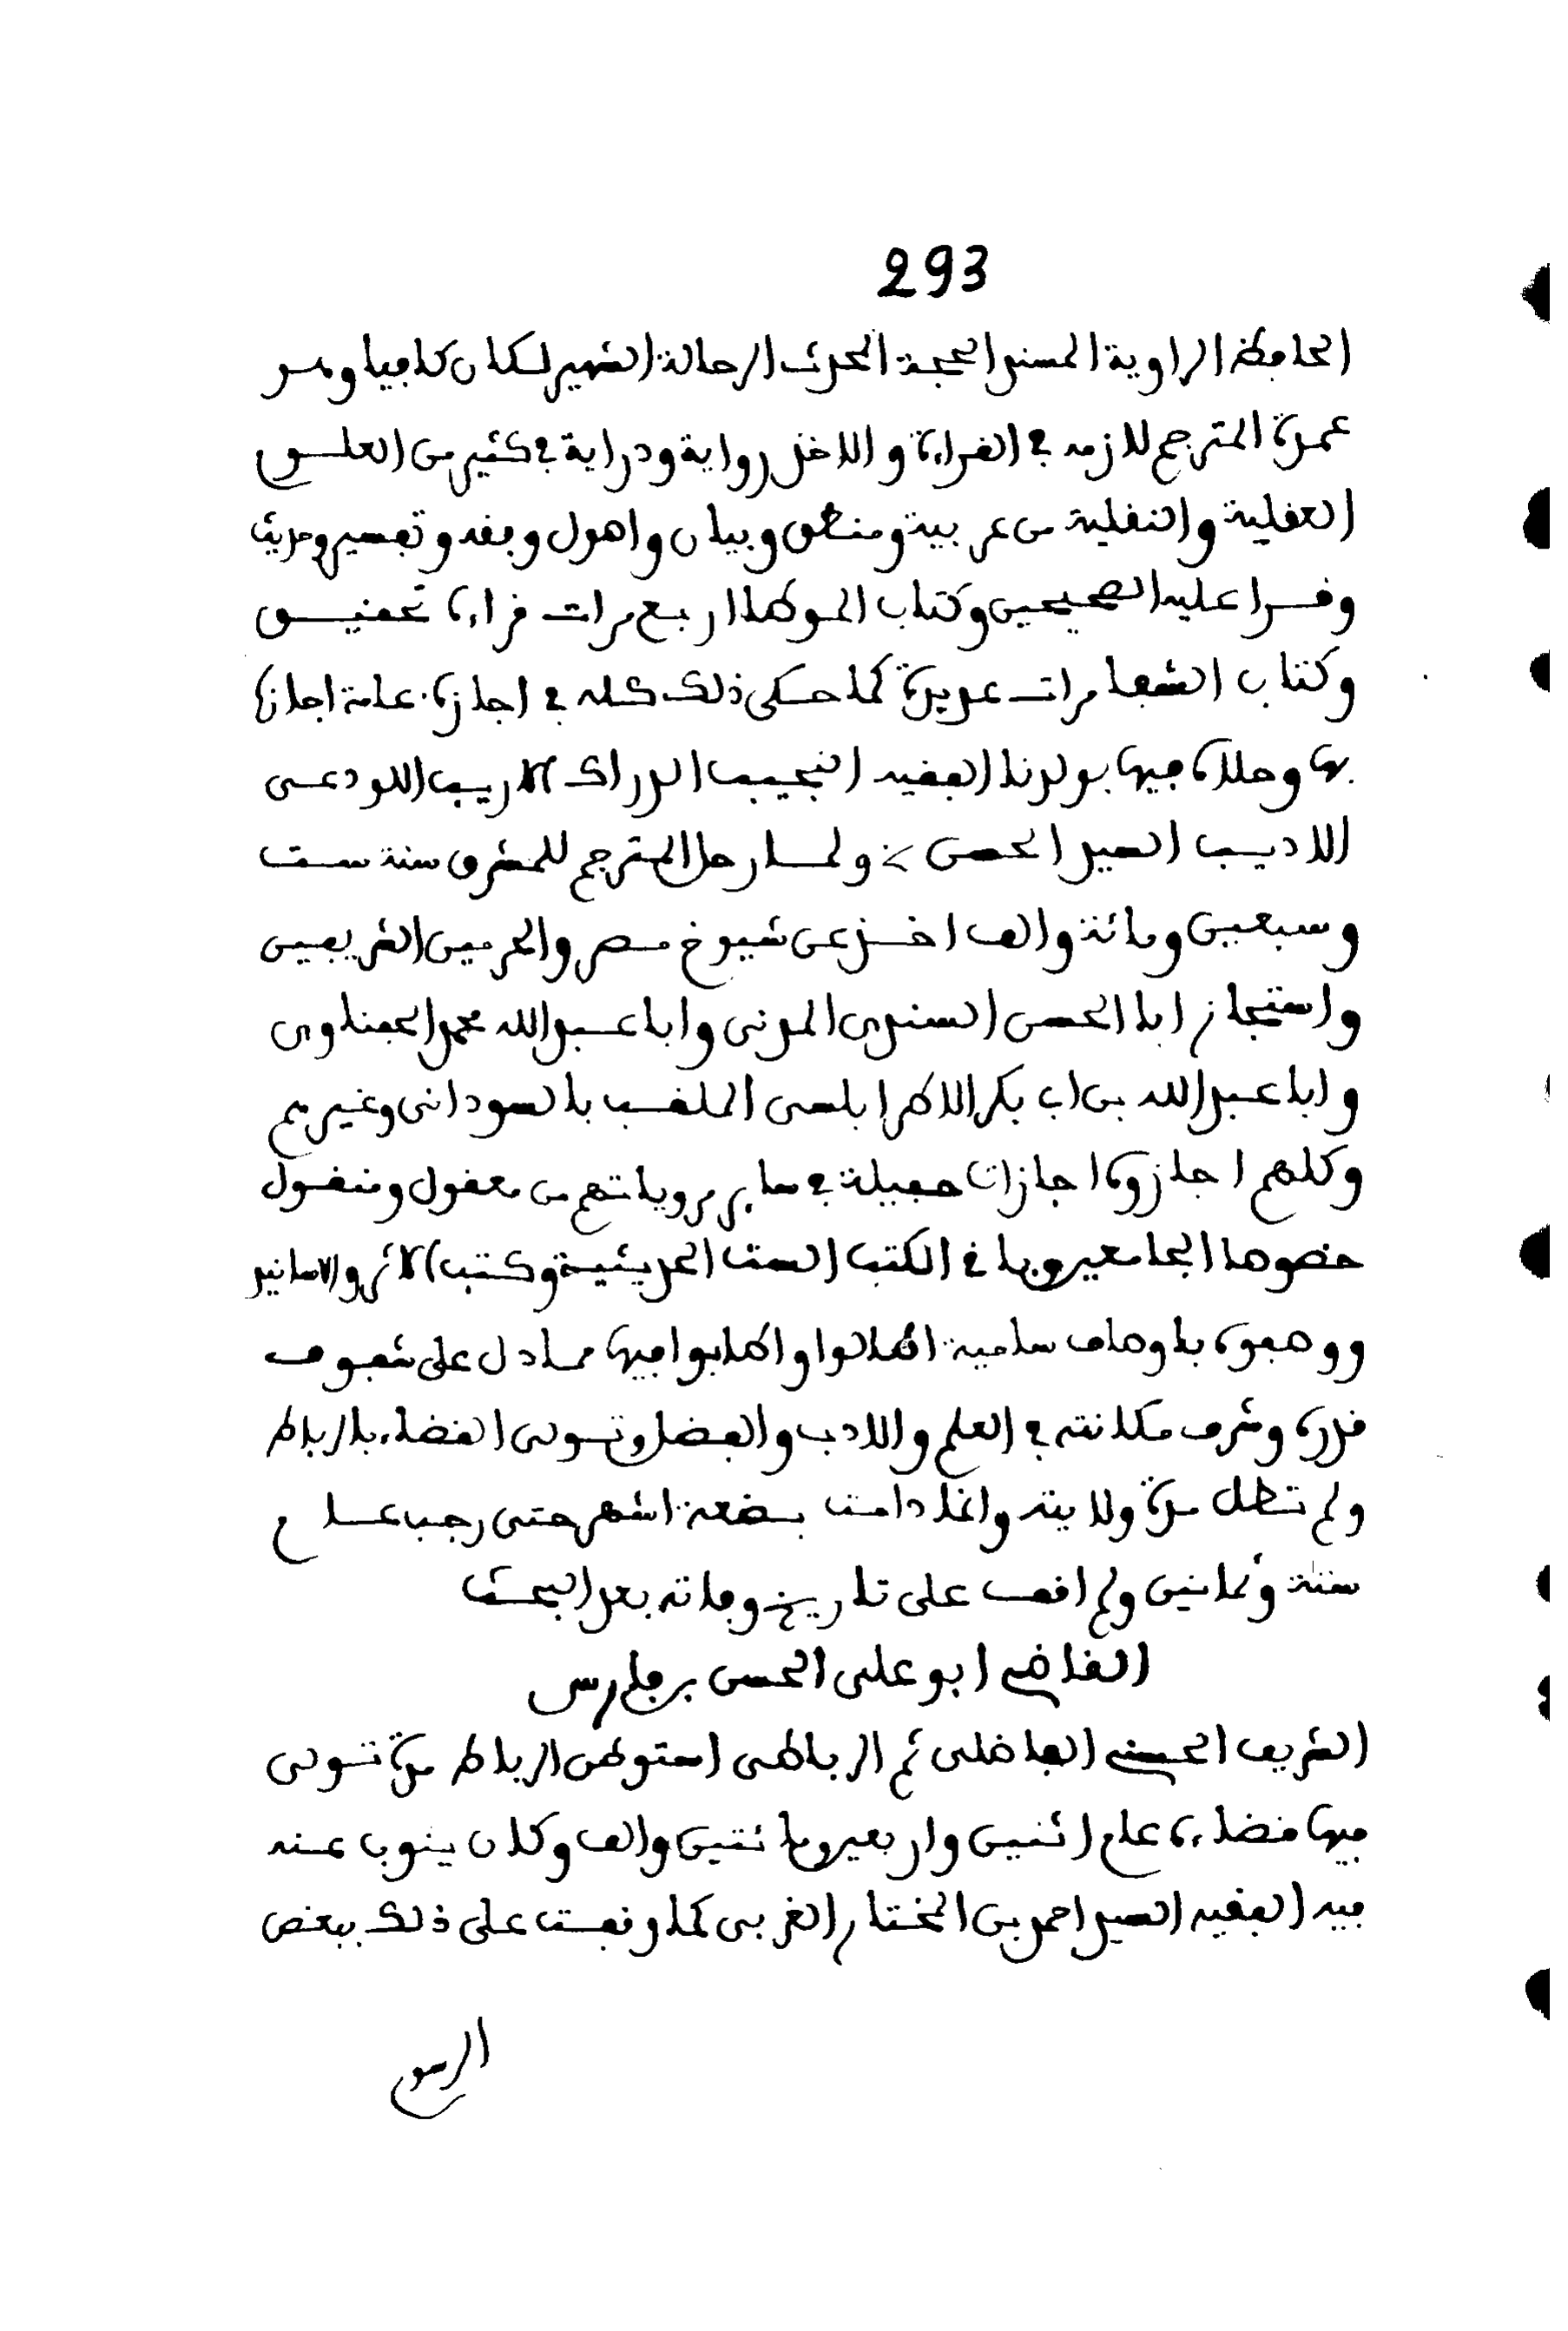 293
الحافظ الراوية المسند الحجة المحدث الرحالة الشهير لكان كافيا وهو
عمدة المترجم لازمه في القراءة والاخذ رواية ودراية في كثير من العلوم
العقلية والنقلية من عربية ومنطق وبيان واصول وفقه وتفسير وحديث
وقرا عليه الصحيحين وكتاب الموطا اربع مرات قراءة تحقيق
وكتاب الشفا مرات عديدة كما حكى ذلك كله في اجازة عامة اجازه
بها وحلاه فيها بولدنا الفقيه النجيب الدراك الاريب اللودعى
الاديب السيد الحسن ولما رحل المترجم للمشرق سنة ست
وسبعين ومائة والف اخذ عن شيوخ مصر والحرمين الشريفين
واستجاز ابا الحسن السندى المدنى وابا عبد الله محمد الحفناوى
وابا عبد الله بن اب بكر الاطرابلسى الملقب بالسودانى وغيرهم
وكلهم اجازوه اجازات جميلة في ساير مروياتهم من معقول ومنقول
خصوها الجامعين وبها في الكتب الست الحديثية وكتب الاثر والاسانيد
ووصفوه باوصاف سامية اطالوا واطابوا فيها مما دل على شفوف
قدره وشرف مكانته في العلم والادب والفضل وتولى القضاء بالرباط
ولم تطل مدة ولايته وانما دامت بضعة اشهر حتى رجب عام
ستة وثمانين ولم اقف على تاريخ وفاته بعد البحث
القاضى ابو على الحسن بن فارس
الشريف الحسنى الفاضلى ثم الرباطى استوطن الرباط مدة تولى
فيها قضاءه عام اثنين واربعين ومائتين والف وكان ينوب عنه
فيه الفقيه السيد احمد بن المختار الغربى كما وقفت على ذلك ببعض
الرسوم